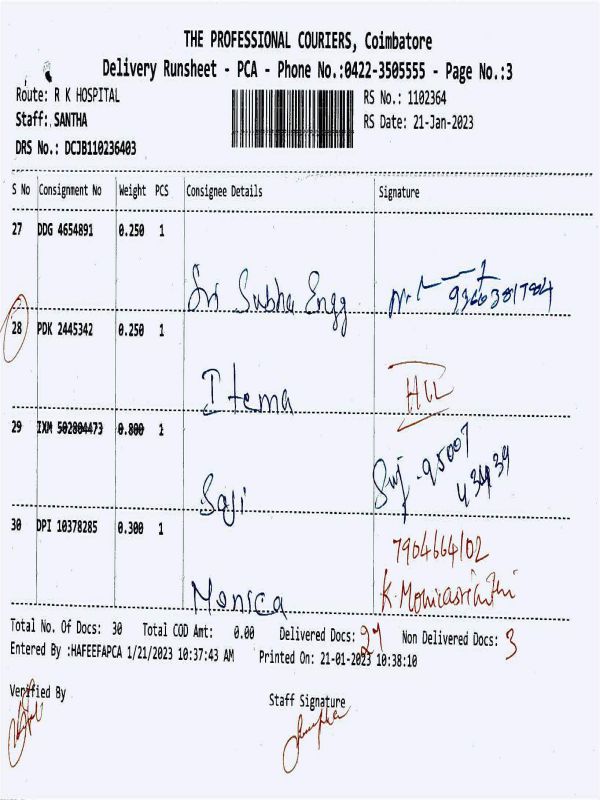 THE PROFESSIONAL COURIERS, Coimbatore
Delivery Runsheet - PCA - Phone No.:0422-3505555 - Page No.:3
Route: R K HOSPITAL
RS No.: 1102364
Staff: SANTHA
RS Date: 21-Jan-2023
DRS No.: DCJB110236403
S No Consignment No Weight PCS Consignee Details Signature
27 DDG 4654891 0.250 1
Sri Subha Engg
28 PDK 2445342 0.250 1
Itema
29 IXM 502804473 0.800 1
Saji
30 DPI 10378285 0.300 1
7904664102
Monica K. Monica
Total No. Of Docs: 30 Total COD Amt: 0.00 Delivered Docs: 27 Non Delivered Docs: 3
Entered By :HAFEEFAPCA 1/21/2023 10:37:43 AM Printed On: 21-01-2023 10:38:10
Verified By
Staff Signature